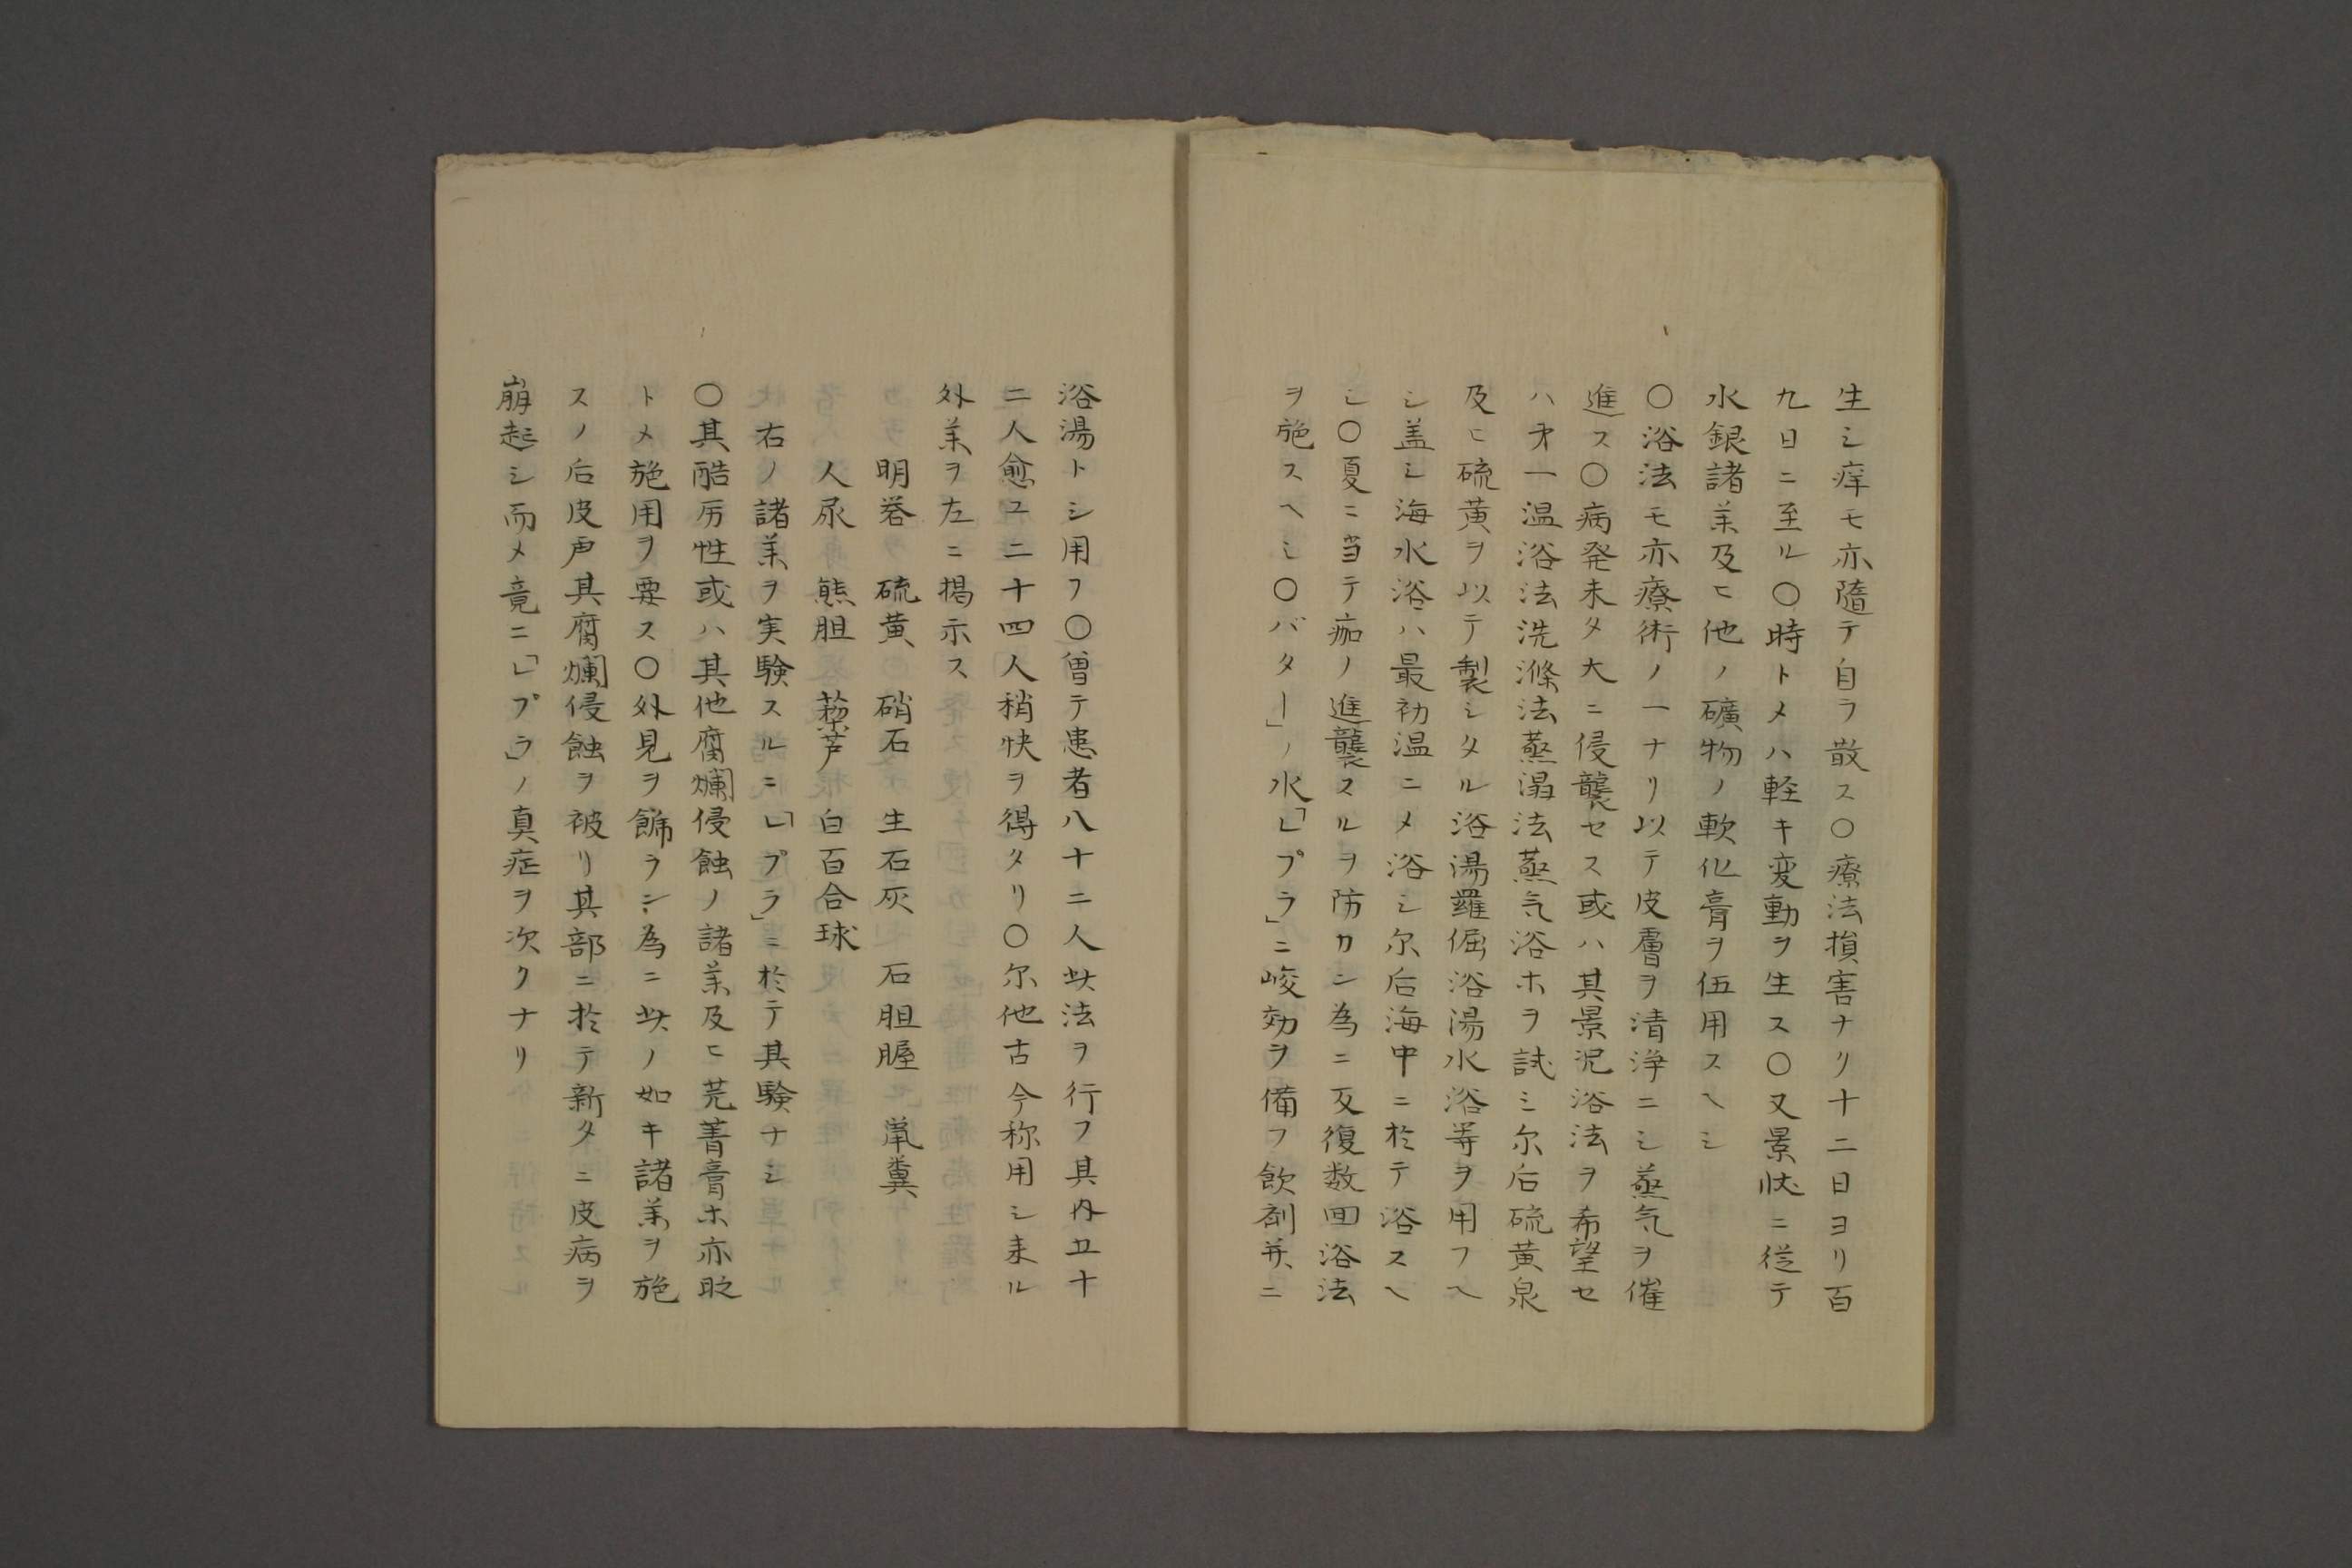 生シ痒モ亦隨テ自ラ散ス〇療法損害ナリ十二日ヨリ百
九日ニ至ル〇時トメハ軽キ変動ヲ生ス〇又景状ニ従テ
水銀諸薬及ヒ他ノ礦物ノ軟化膏ヲ伍用スヘシ
〇浴法モ亦療術ノ一ナリ以テ皮膚ヲ清浄ニシ蒸気ヲ催
進ス〇病発未タ大ニ侵襲セス或ハ其景况浴法ヲ希望セ
ハ才一温浴法洗滌法蒸溻法蒸気浴ホヲ試ミ尓后硫黄泉
及ヒ硫黄ヲ以テ製シタル浴湯羅倔浴湯水浴等ヲ用フヘ
シ盖シ海水浴ハ最初温ニメ浴シ尓后海中ニ於テ浴スヘ
シ〇夏ニ当テ痂ノ進襲スルヲ防カン為ニ反復数回浴法
ヲ施スヘシ〇バター」ノ水「レプラ」ニ峻効ヲ備フ飲剤并ニ
浴湯トシ用フ〇曽テ患者八十二人此法ヲ行フ其内五十
二人愈ユ二十四人稍快ヲ得タリ〇尓他古今称用シ来ル
外薬ヲ左ニ掲示ス
明礬　硫黄　硝石　生石灰　石胆腥　鼠糞
人尿　熊胆　藜芦　白百合球
右ノ諸薬ヲ実験スルニ「レプラ」ニ於テ其験ナシ
〇其酷厉性或ハ其他腐爛侵蝕ノ諸薬及ヒ芫菁膏ホ亦貶
トメ施用ヲ要ス〇外見ヲ餙ラン為ニ此ノ如キ諸薬ヲ施
スノ后皮声其腐爛侵蝕ヲ被リ其部ニ於テ新タニ皮病ヲ
崩起シ而メ竟ニ「レプラ」ノ真症ヲ次クナリ